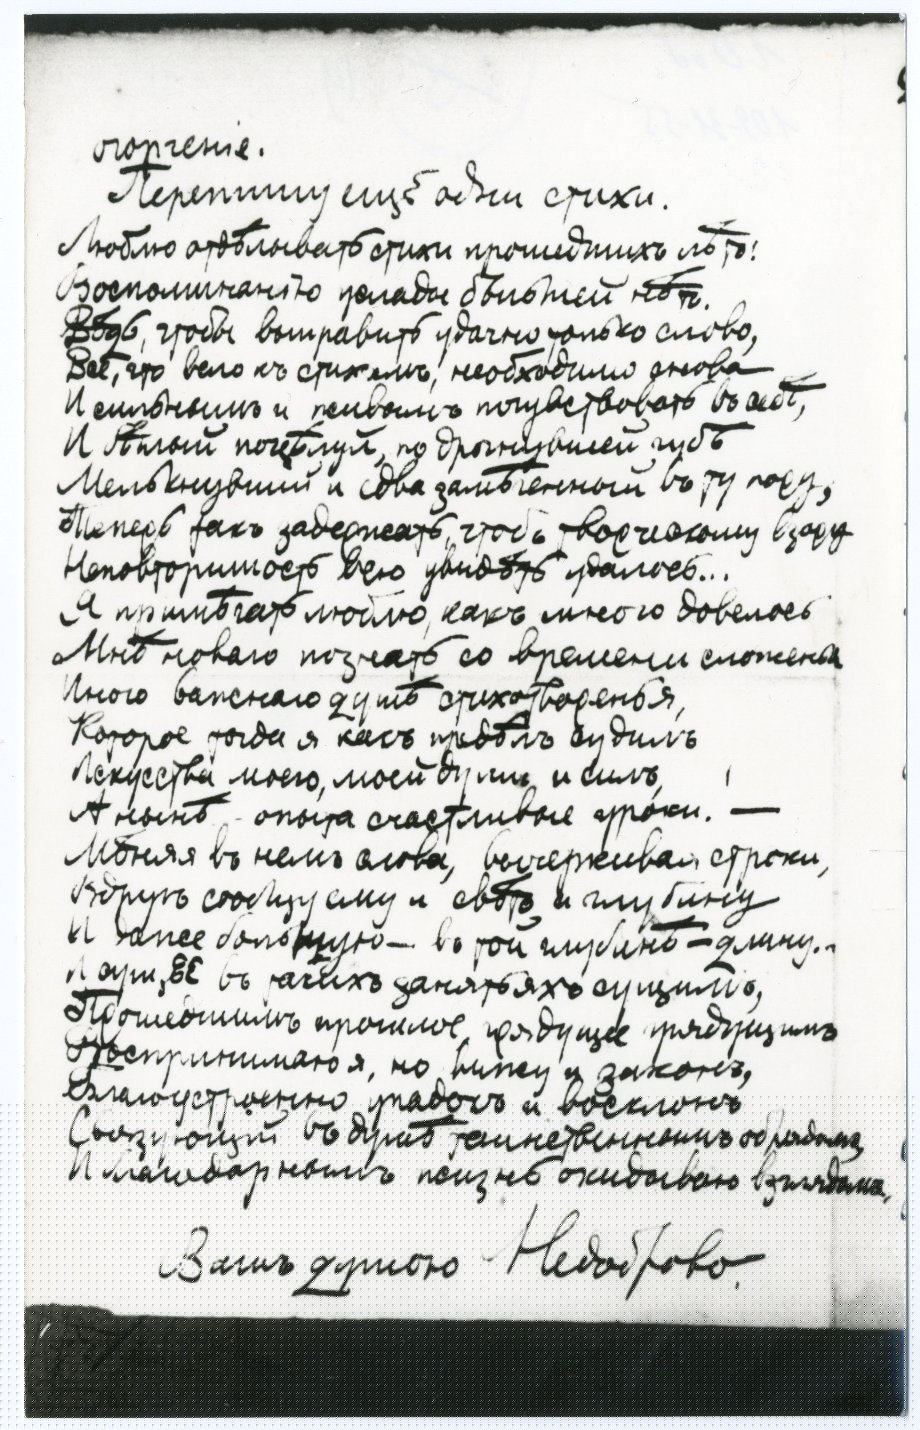 огорченіе.
Перепишу ещё одни стихи.
Люблю отдѣлывать стихи прошедшихъ лѣтъ!
Воспоминанію услады бѣльшей нѣтъ.
Вѣдь, чтобы выправить удачно только слово,
Всё, что вело къ стихамъ, необходимо снова
И сильнымъ и живымъ почувствовать въ себѣ,
И милый поцѣлуй, по дрогнувшей губѣ
Мелькнувшій и едва замѣченный въ ту пору,
Теперь такъ задержать, чтобъ творческому взору
Неповторимость всю увидѣть удалось...
Я примѣчать люблю, какъ много довелось
Мнѣ новаго познать со времени сложенья
Иного важнаго душѣ стихотворенья,
Которое тогда я какъ предѣлъ судилъ
Искусства моего, моей души и силъ,
А нынѣ - опыта счастливые уроки! —
Мѣняя въ немъ слова, вычеркивая строки,
Вдругъ сообщу ему и свѣтъ и глубину
И даже большую — въ той глубинѣ — длину..
въ такихъ занятьяхъ сущимъ,
Прошедшимъ прошлое, грядущее грядущимъ
Воспринимаю я, но вижу и законъ,
Благоустроенно упадокъ и восклонъ
Связующій въ душѣ таинственнымъ обрядомъ
И благодарнымъ жизнь окидываю взглядомъ.
Вашъ дружбою Недоброво.